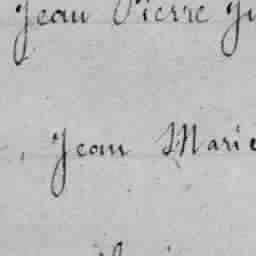 Jean Pierre
Jean Marie